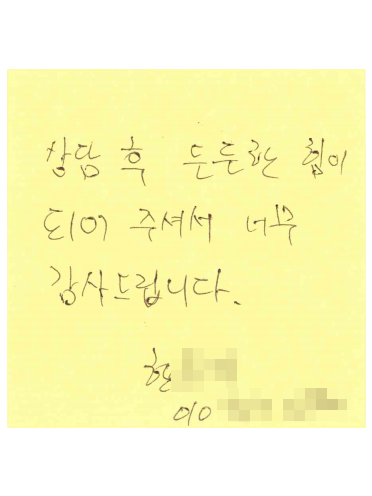 상담 후 든든한 힘이
되어 주셔서 너무
감사드립니다.
현
010